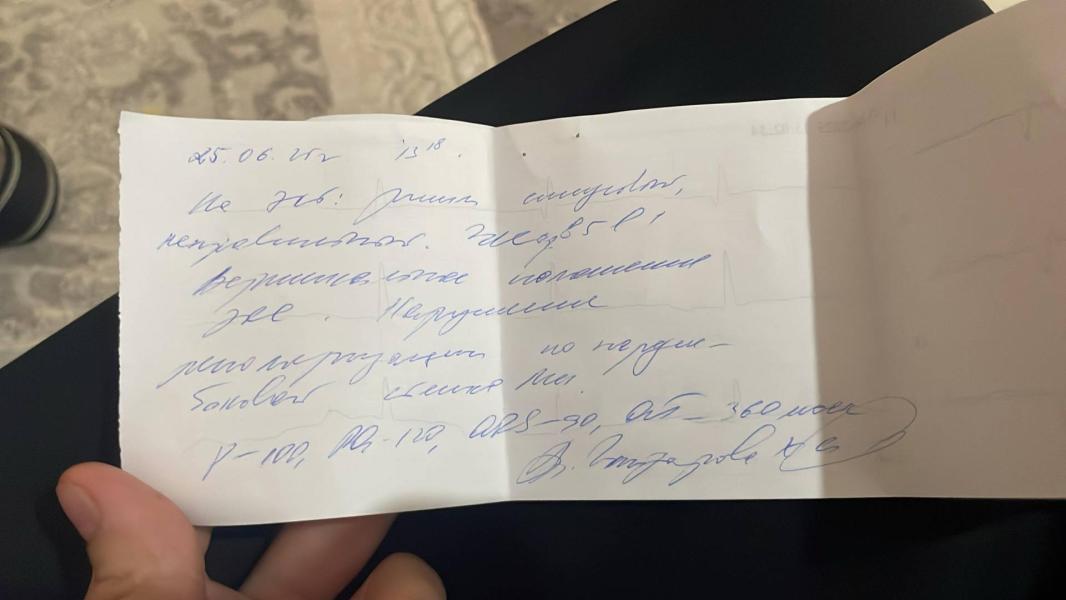 25.06.25г 13 18.
На ЭКГ: ритм синусовый,
неправильный. ЧСС 85 в 1
Вертикальное положение
ЭОС. Нарушения
реполяризации по передне-
боковой стенке ЛЖ.
P-100, PQ-120, QRS-90, QT-360 мсек